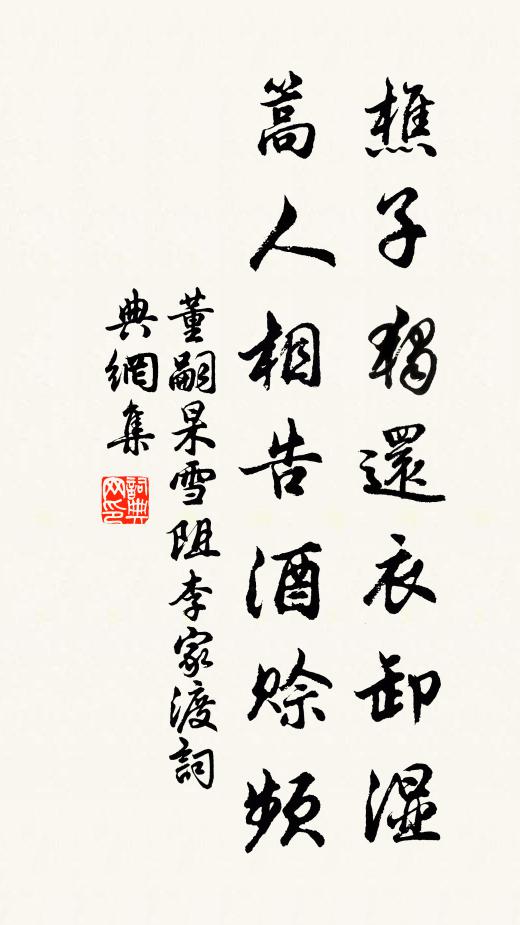 樵子獨還衣卸濕
篙人相告酒賒頻
董嗣杲雪阻李家渡詞
典網集
詞典
网印